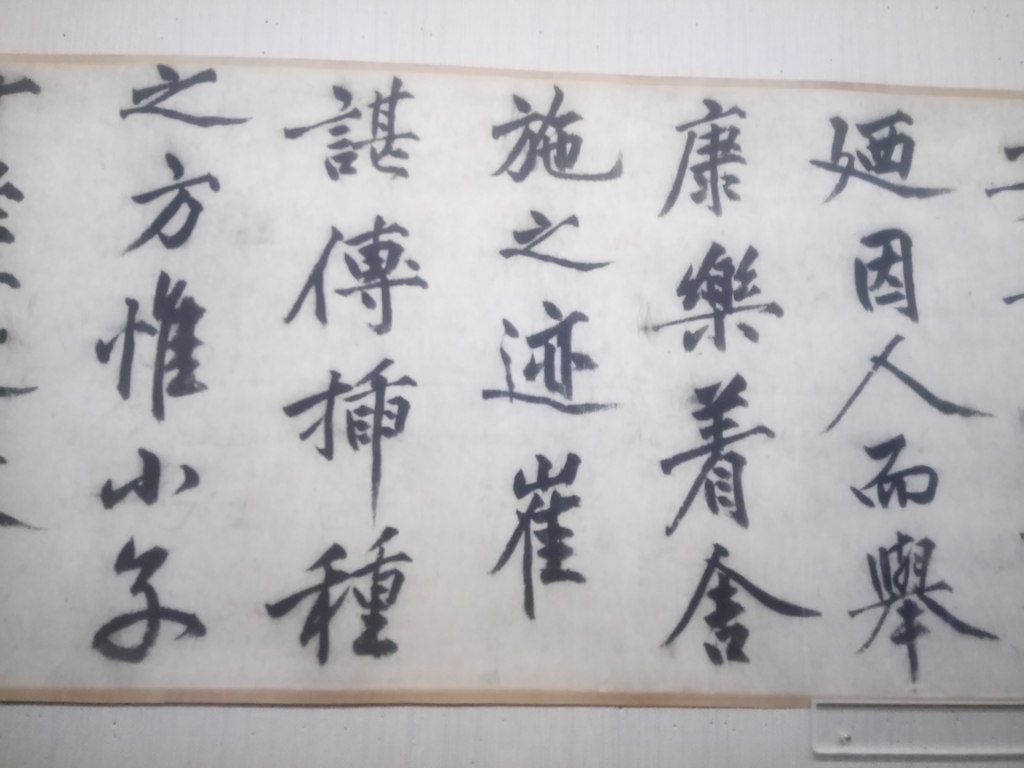 廼因人而舉
康樂着舍
施之迹崔
諶傳插種
之方惟小子